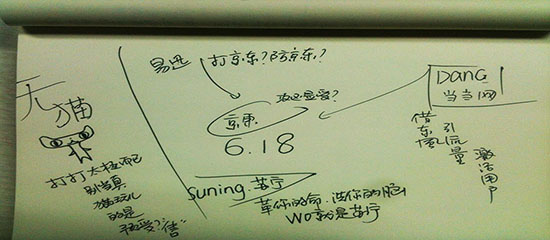 天猫
打打太极而已
别当真
猫玩儿
的是
易迅
打京东?防京东?
攻还是受?
京东
6.18
DANG
当当网
借东风
引流量
激活用户
suning.苏宁
革你的命.洗你的脑
WO就是苏宁